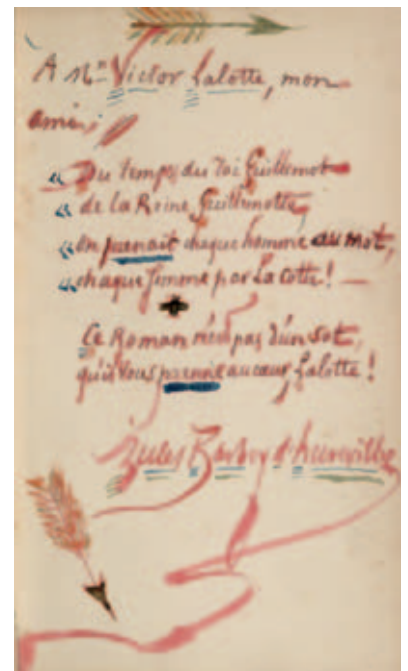 A Mr Victor Lalotte, mon
ami,
« Du temps du Roi Guillemot
« de la Reine Guillemotte,
« on prenait chaque homme au mot,
« chaque femme par la cotte ! —
Ce Roman n'est pas d'un sot,
qu'il vous prenne au cœur, Lalotte !
Jules Barbey d'Aurevilly